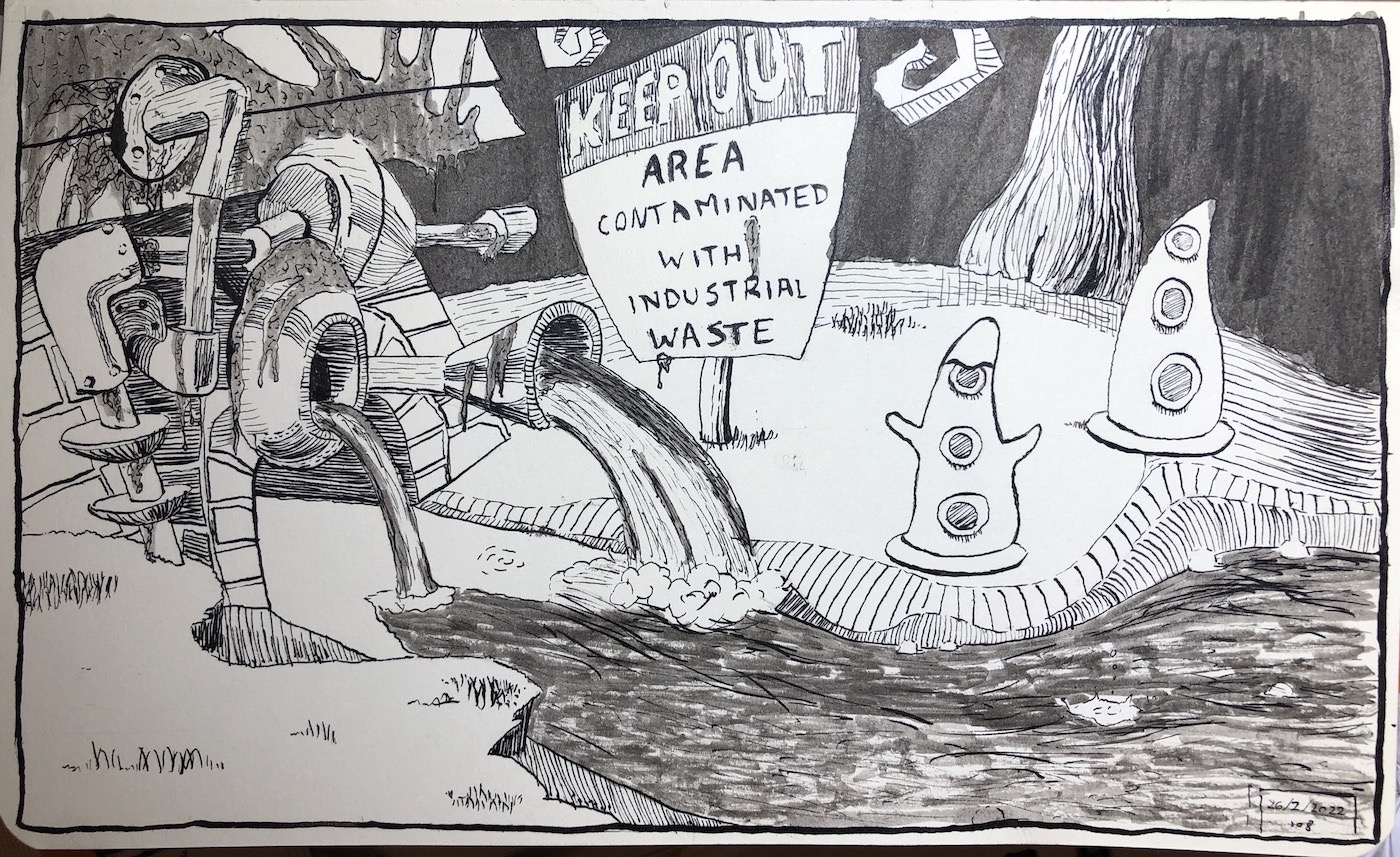 KEEP OUT
AREA
CONTAMINATED
WITH
INDUSTRIAL
WASTE
26/2/2022
108